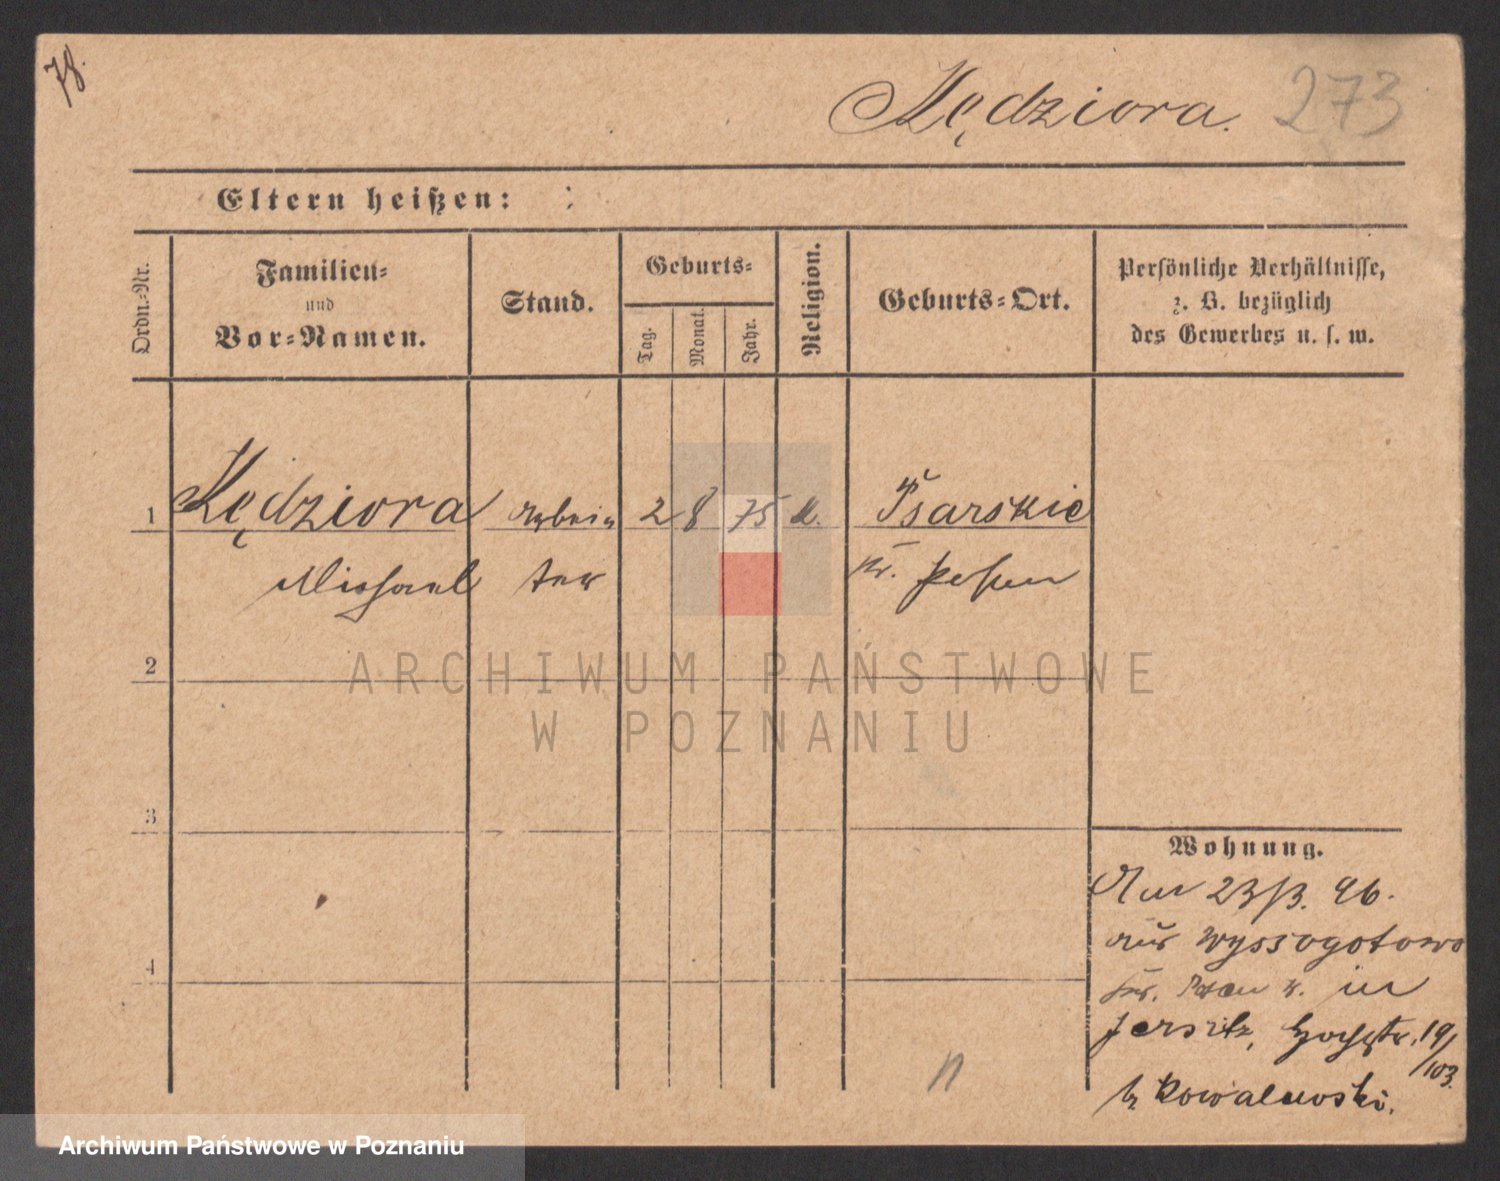 78.
Kędziora. 273
Eltern heißen:
Ordn.-Nr.
Familien-
und
Vor-Namen.
Stand.
Geburts-
Tag.
Monat.
Jahr.
Religion.
Geburts-Ort.
Persönliche Verhältnisse,
z. B. bezüglich
des Gewerbes u. s. w.
1 Kędziora Arbei- 2 8 75 k. Psarskie
Michael ter Kr. Posen
2
3
4
ARCHIWUM PAŃSTWOWE
W POZNANIU
Wohnung.
Am 23/3. 96.
aus Wyssogotowo
Kr. Posen W. in
Jersitz, Hochstr. 19/
/103.
b. Kowalewski.
Archiwum Państwowe w Poznaniu